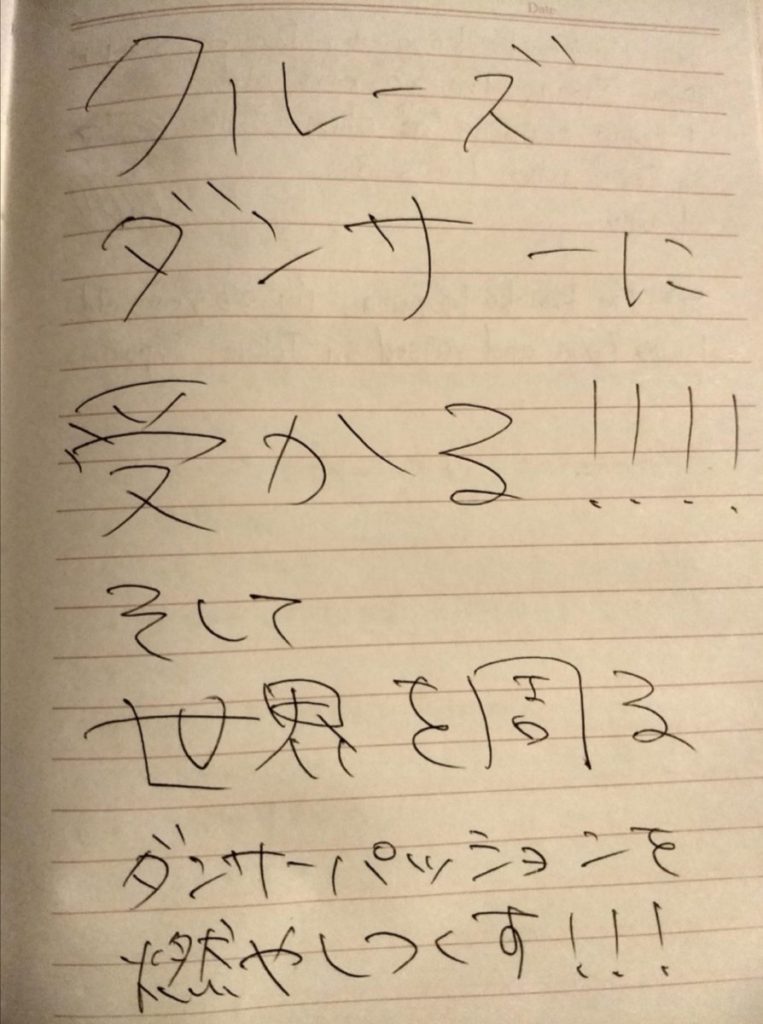 Date
クルーズ
ダンサーに
受かる!!!!
そして
世界を周る
ダンサーパッションを
燃やしつくす!!!